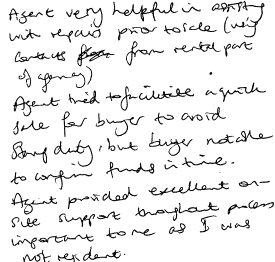 Agent very helpful in assisting
with repairs prior to sale (using
contacts from rental part
of agency)
Agent tried to facilitate a quick
sale for buyer to avoid
Stamp duty, but buyer not able
to confirm funds in time.
Agent provided excellent on-
site support throughout process
important to me as I was
not resident.